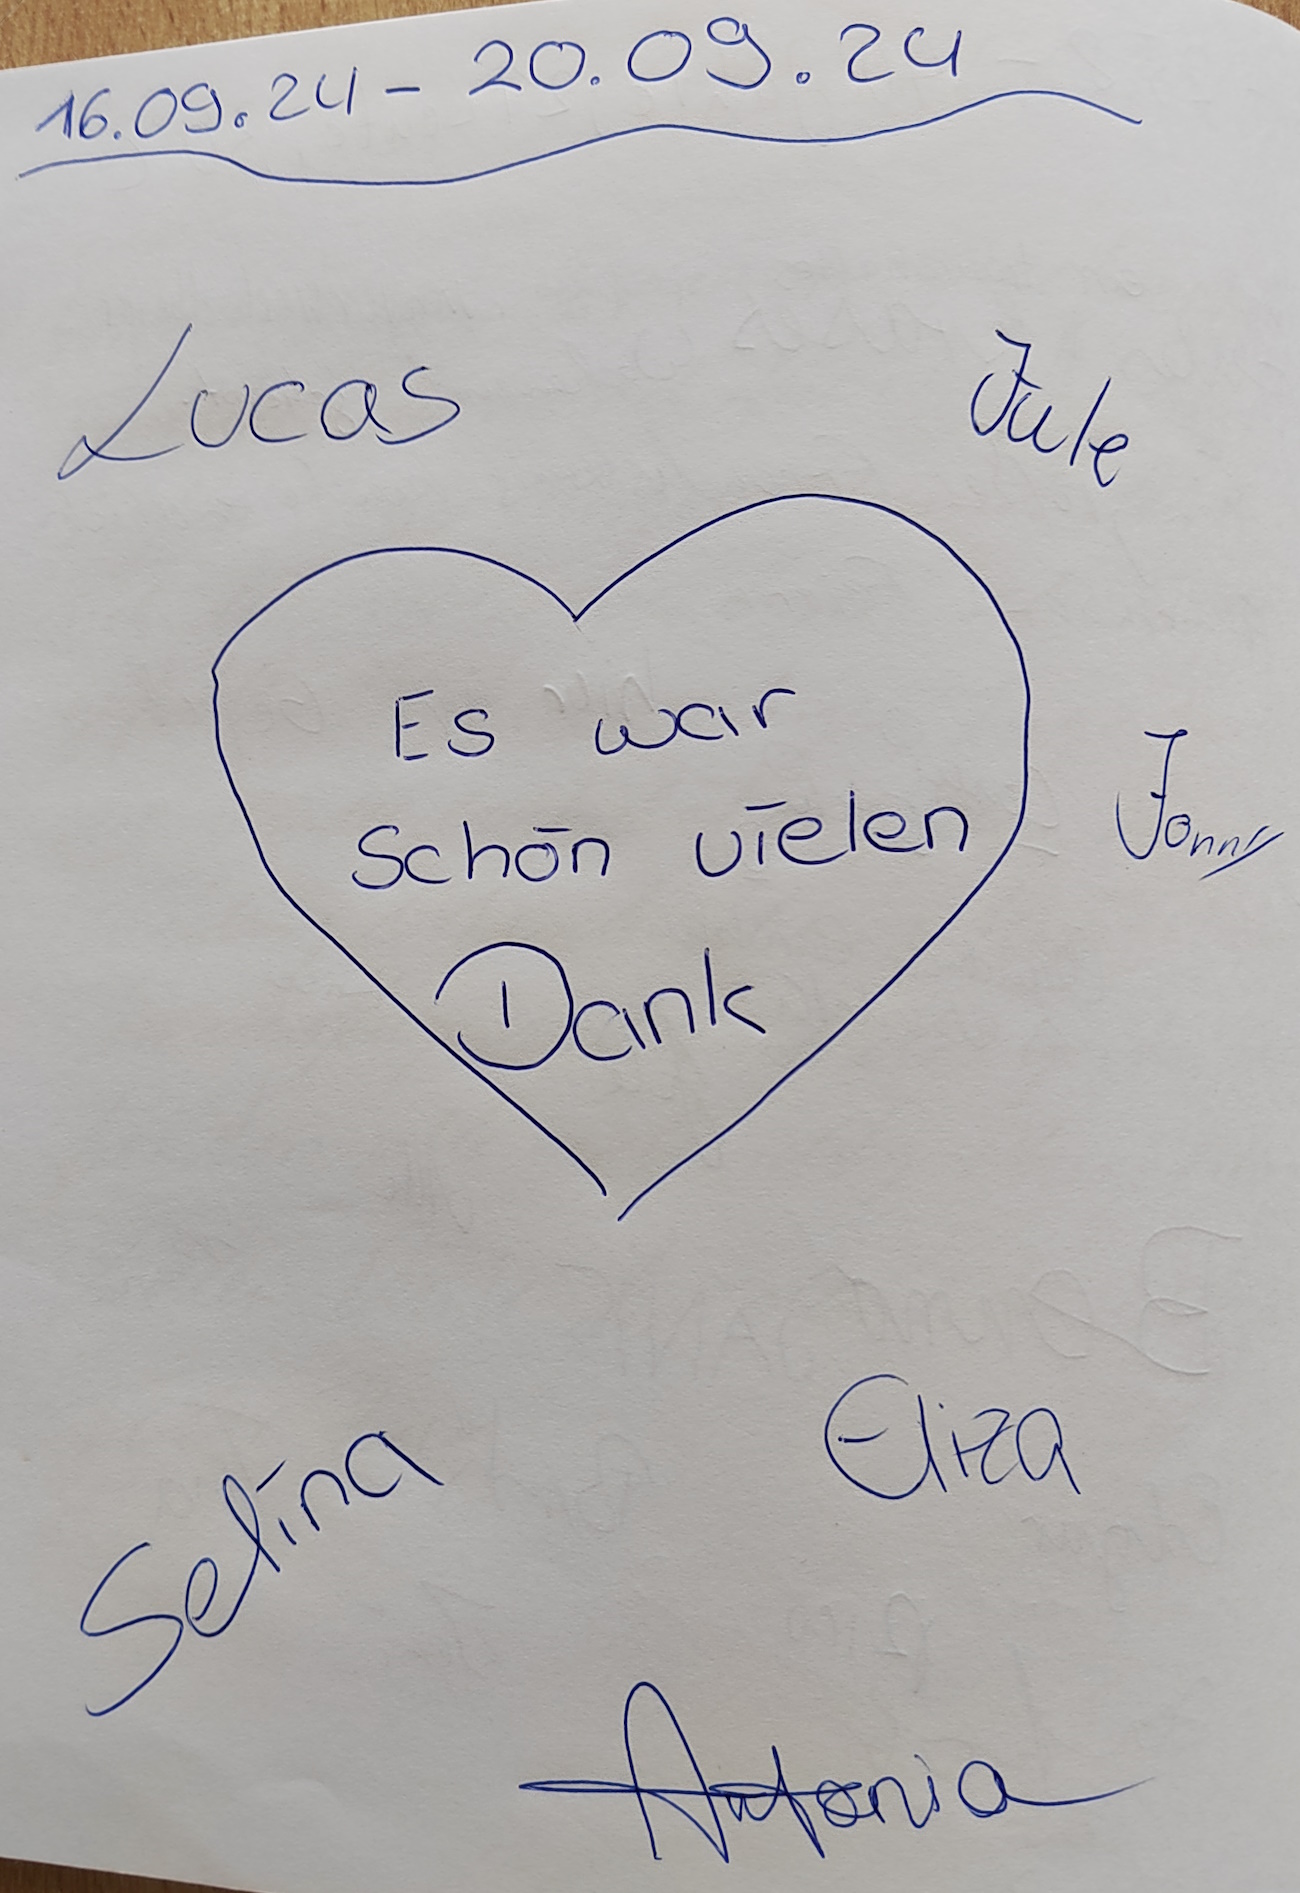 16.09.24 - 20.09.24
Lucas
Jule
Es war
Schön vielen
Dank
Jonny
Selina
Eliza
Antonia